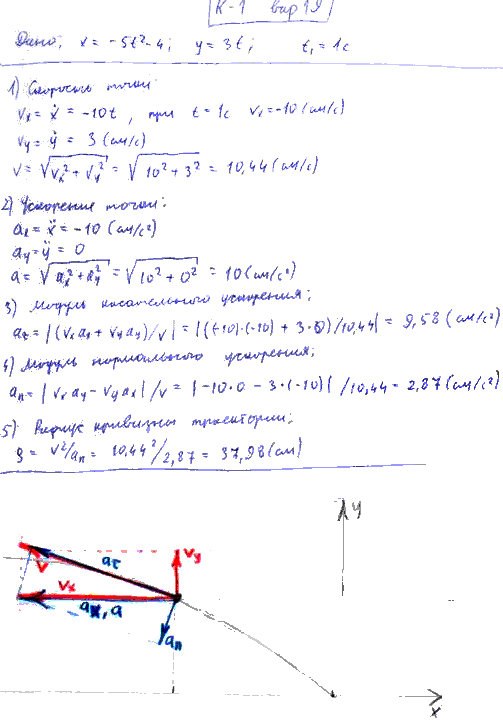 К-1 вар 19
Дано: x = -5t²-4; y = 3t; t₁ = 1с
1) Скорость точки:
Vx = ẋ = -10t, при t = 1с Vx = -10 (см/с)
Vy = ẏ = 3 (см/с)
V = √(Vx² + Vy²) = √(10² + 3²) = 10,44 (см/с)
2) Ускорение точки:
ax = ẍ = -10 (см/с²)
ay = ÿ = 0
a = √(ax² + ay²) = √(10² + 0²) = 10 (см/с²)
3) Модуль касательного ускорения:
aτ = |(Vx ax + Vy ay)/V| = |((-10)·(-10) + 3·0)/10,44| = 9,58 (см/с²)
4) Модуль нормального ускорения:
an = |Vx ay - Vy ax|/V = |-10·0 - 3·(-10)|/10,44 = 2,87 (см/с²)
5) Радиус кривизны траектории:
ρ = V²/an = 10,44²/2,87 = 37,98 (см)
y
Vy
aτ
V
Vx
ax, a
an
x